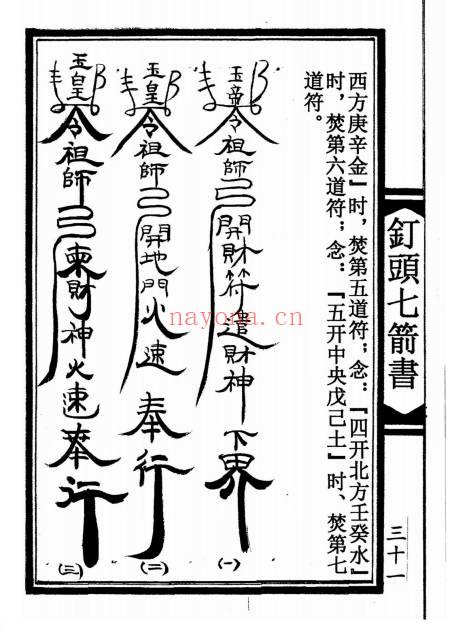 西方庚辛金』时，焚第五道符；念：『四开北方壬癸水』
时，焚第六道符；念：『五开中央戊己土』时、焚第七
道符。
玉帝令祖師開財符追財神下界
(一)
玉皇令祖師開地門火速奉行
(二)
玉皇令祖師財神火速奉行
(三)
釘頭七箭書
三十一
nayona.cn